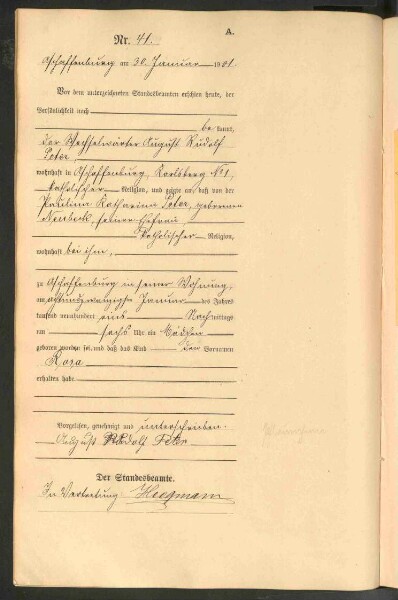 A.
Nr. 41.
Aschaffenburg am 30. Januar 1901.
Vor dem unterzeichneten Standesbeamten erschien heute, der
Persönlichkeit nach
be kannt,
der Wechselwärter August Rudolf
Peter,
wohnhaft in Aschaffenburg, Karlsberg № 1,
katholischer Religion, und zeigte an, daß von der
Paulina Katharina Peter, geborenen
Neubeck, seiner Ehefrau,
katholischer Religion,
wohnhaft bei ihm,
zu Aschaffenburg in seiner Wohnung,
am achtundzwanzigsten Januar des Jahres
tausend neunhundert eins Nachmittags
um sechs Uhr ein Mädchen
geboren worden sei und daß das Kind den Vornamen
Rosa
erhalten habe
Vorgelesen, genehmigt und unterschrieben.
August Rudolf Peter
Der Standesbeamte.
In Vertretung: